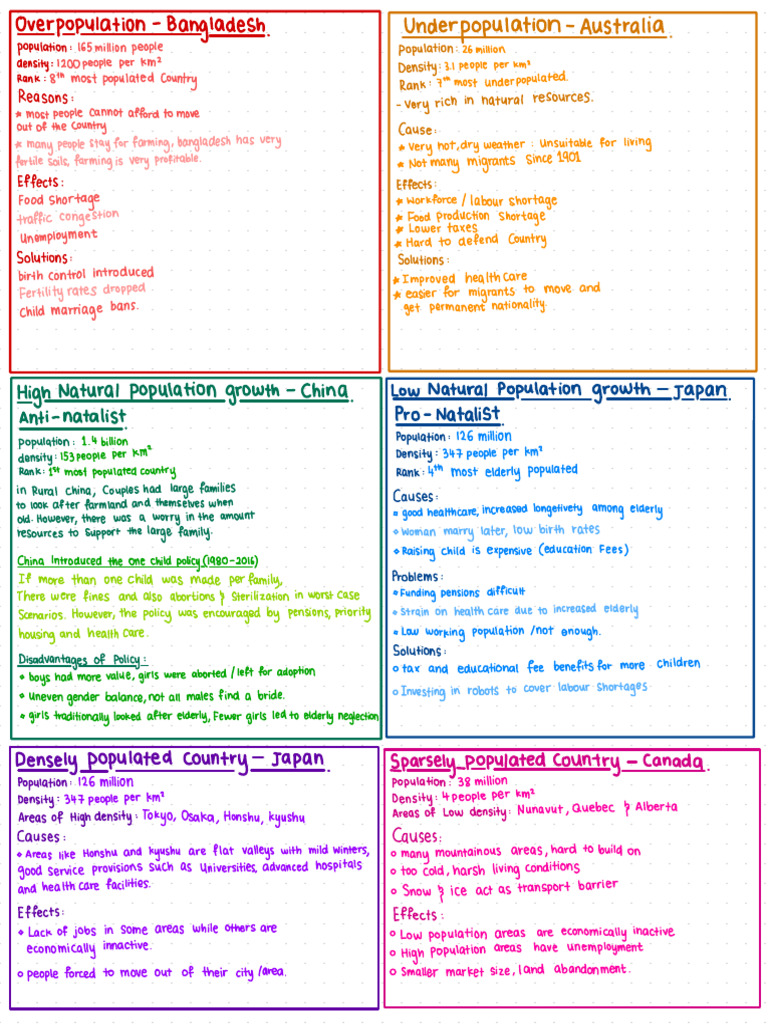 Overpopulation - Bangladesh
population: 165 million people
density: 1200 people per km²
Rank: 8th most populated Country
Reasons:
* most people cannot afford to move
out of the country
* many people stay for farming, bangladesh has very
fertile soils, farming is very profitable.
Effects:
Food shortage
traffic congestion
Unemployment
Solutions:
birth control introduced
Fertility rates dropped
Child marriage bans.
Underpopulation - Australia
Population: 26 million
Density: 3.1 people per km²
Rank: 7th most underpopulated.
- very rich in natural resources.
Cause:
* Very hot, dry weather : Unsuitable for living
* Not many migrants since 1901
Effects:
* Workforce / labour shortage
* Food production shortage
* Lower taxes
* Hard to defend Country
Solutions:
* Improved health care
* easier for migrants to move and
get permanent nationality.
High Natural Population growth - China
Anti-natalist
population: 1.4 billion
density: 153 people per km²
Rank: 1st most populated country
in Rural China, Couples had large families
to look after farmland and themselves when
old. However, there was a worry in the amount
resources to support the large family.
China Introduced the one child policy (1980-2016)
If more than one child was made per family,
There were fines and also abortions & Sterilization in worst case
Scenarios. However, the policy was encouraged by pensions, priority
housing and health care.
Disadvantages of Policy:
* boys had more value, girls were aborted / left for adoption
* uneven gender balance, not all males find a bride.
* girls traditionally looked after elderly, Fewer girls led to elderly neglection
Low Natural Population growth - Japan
Pro-Natalist
Population: 126 million
Density: 347 people per km²
Rank: 4th most elderly populated
Causes:
* good healthcare, increased longetivety among elderly
* Woman marry later, low birth rates
* Raising child is expensive (education Fees)
Problems:
* Funding pensions difficult
* Strain on health care due to increased elderly
* Low working population / not enough.
Solutions:
o tax and educational fee benefits for more children
o Investing in robots to cover labour shortages
Densely populated Country - Japan
Population: 126 million
Density: 347 people per km²
Areas of High density: Tokyo, Osaka, Honshu, kyushu
Causes:
* Areas like Honshu and kyushu are flat valleys with mild winters,
good service provisions such as Universities, advanced hospitals
and health care facilities.
Effects:
* Lack of jobs in some areas while others are
economically innactive.
o people forced to move out of their city / area.
Sparsely populated Country - Canada
Population: 38 million
Density: 4 people per km²
Areas of Low density: Nunavut, Quebec & Alberta
Causes:
o many mountainous areas, hard to build on
o too cold, harsh living conditions
o Snow & ice act as transport barrier
Effects:
o Low population areas are economically inactive
o High population areas have unemployment
o Smaller market size, land abandonment.